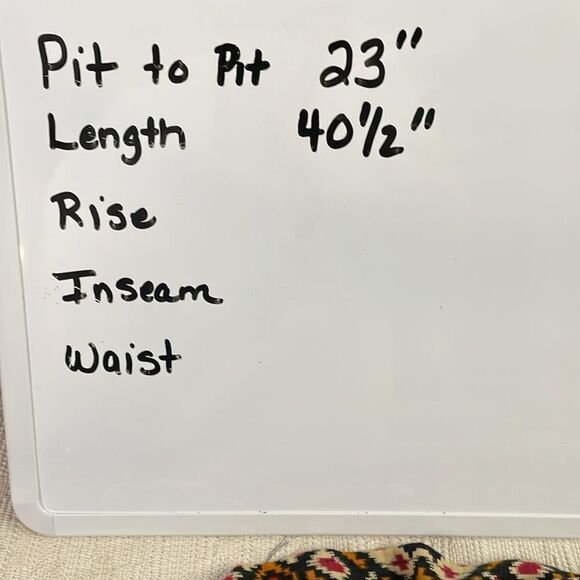 Pit to Pit 23"
Length 40 1/2"
Rise
Inseam
Waist